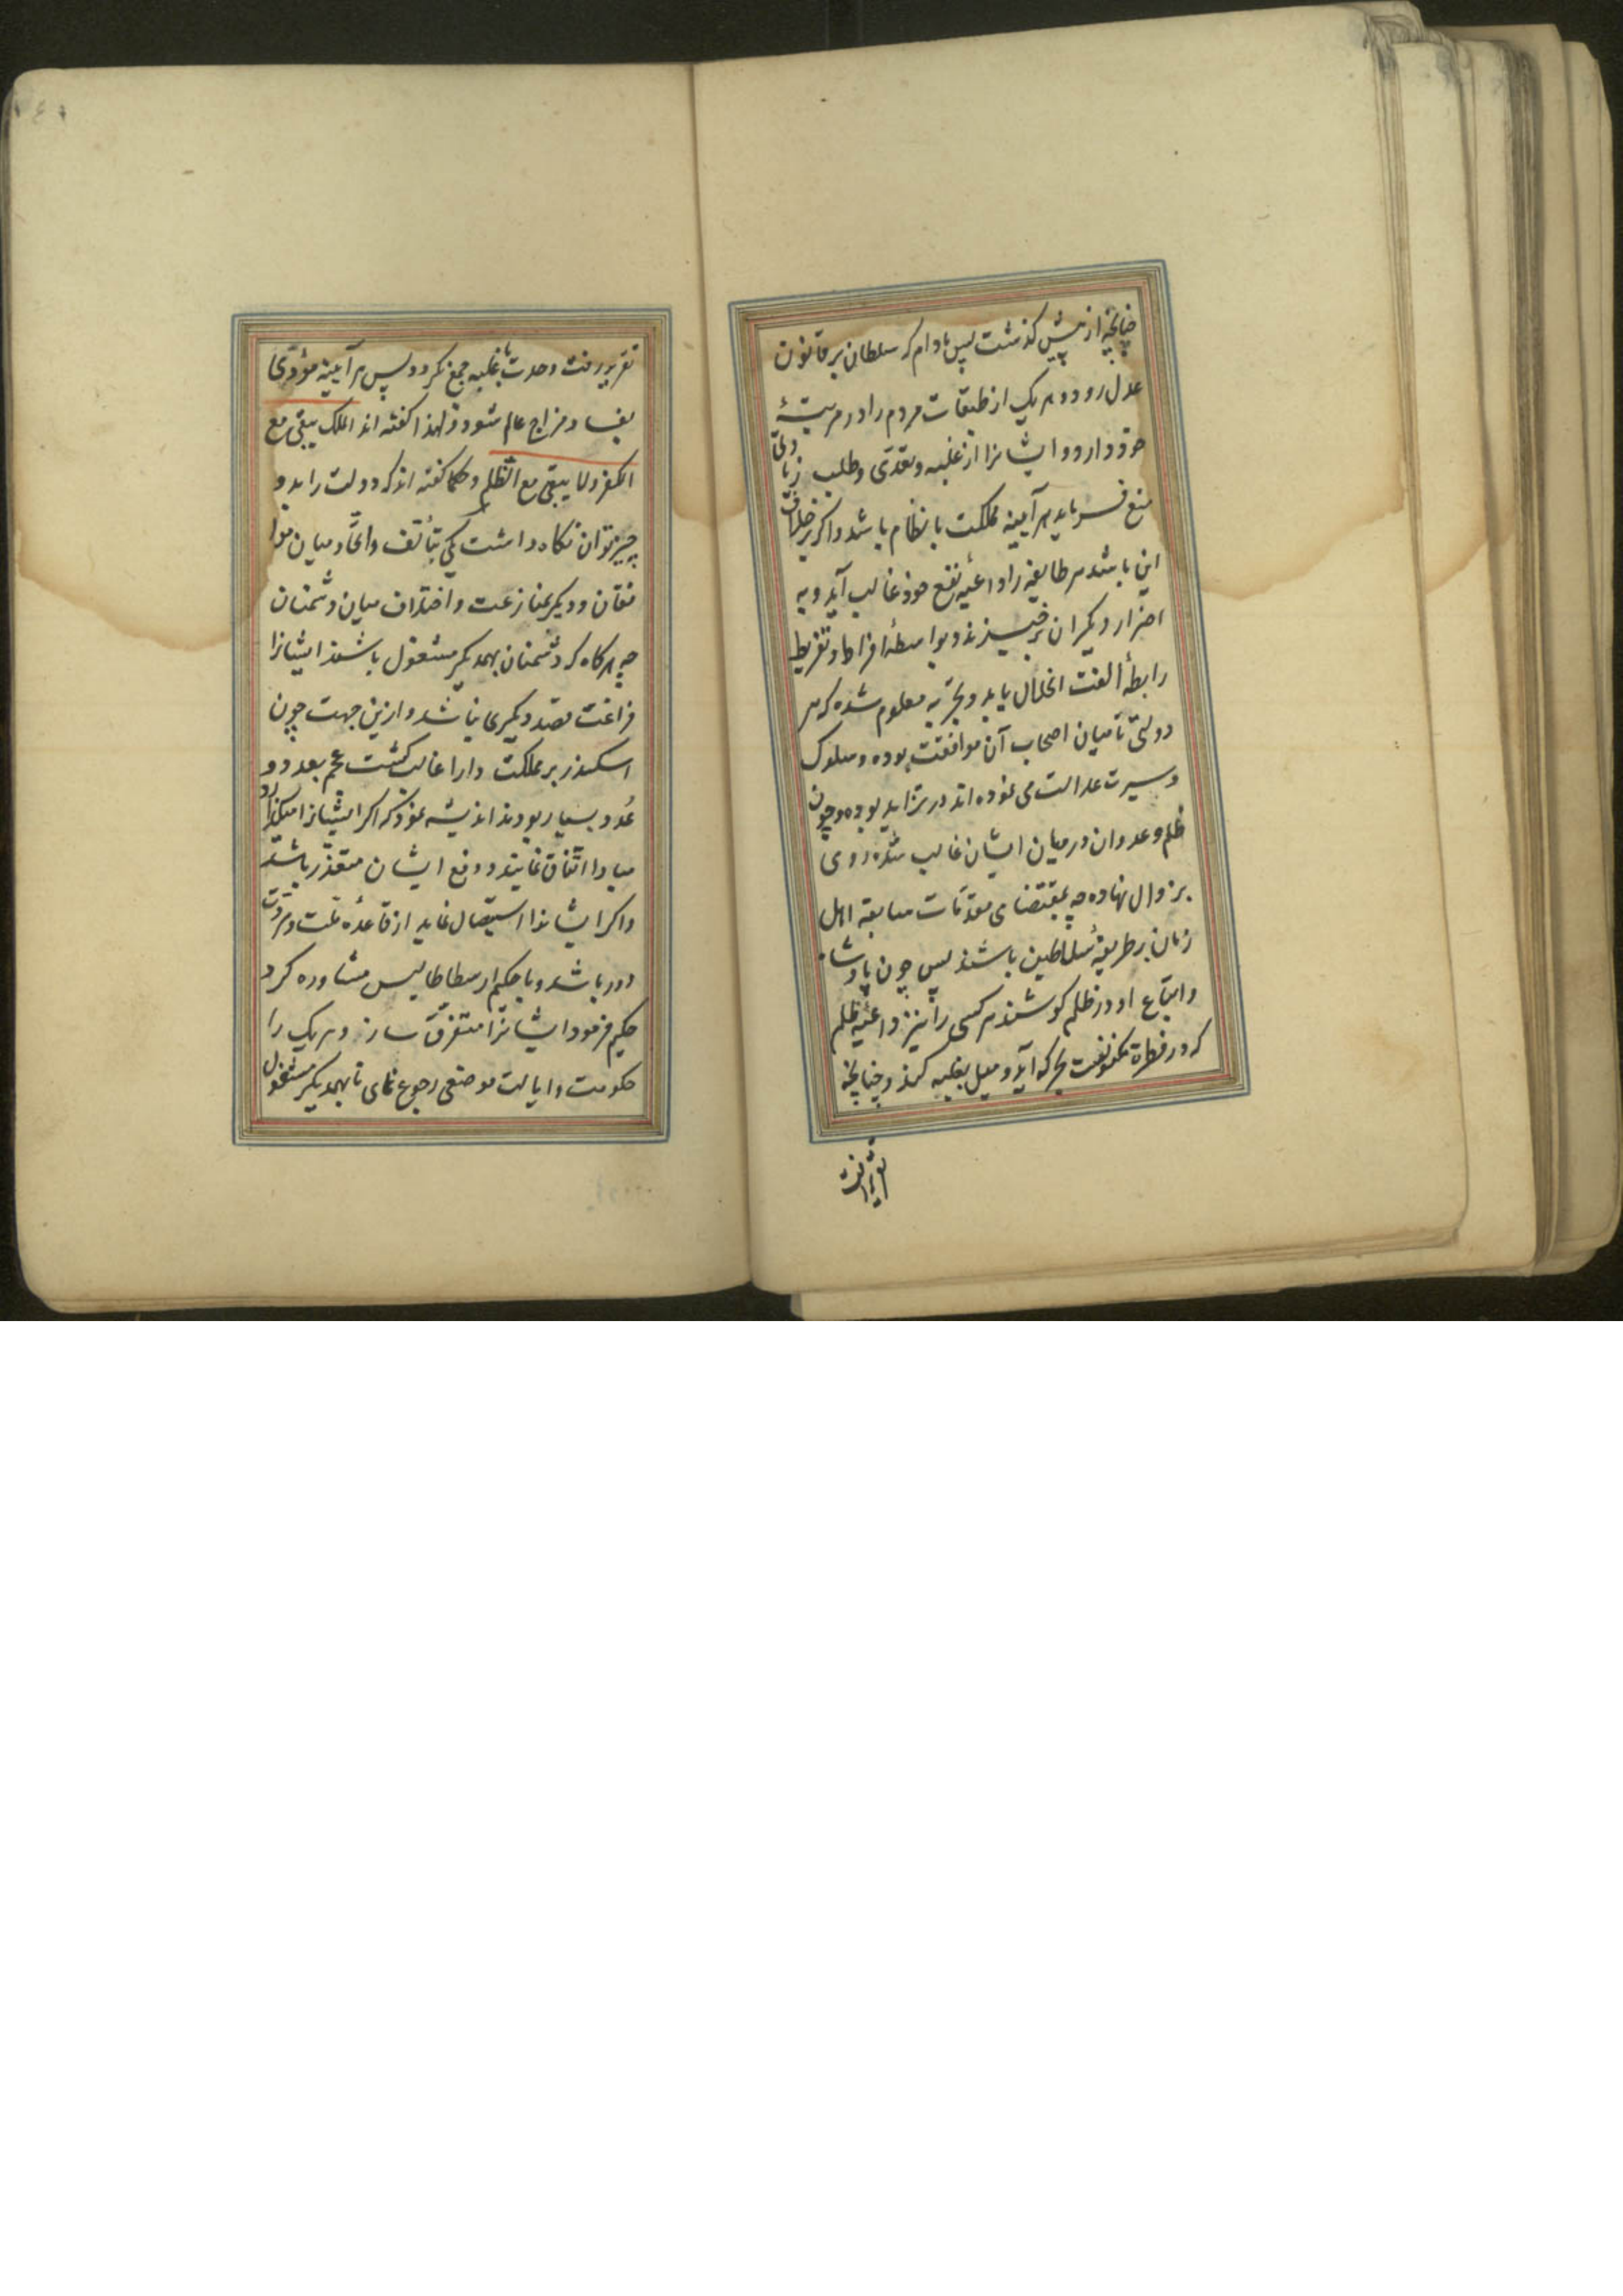 چنانچه از پیش کذشت پس مادام که سلطان بر قانون
عدل رود و هر یک از طبقات مردم را در مرتبهٔ
خود دارد و ایشانرا از غلبه و تعدّی و طلب زیادتی
منع فرماید هر آیینه مملکت بانظام باشد و اکر بر خلاف
این باشد هر طایفه را داعیه نفع خود غالب آید و به
اضرار دیکران برخیزند و بواسطهٔ افراط و تفریط
رابطهٔ الفت انحلال یابد و بتجربه معلوم شده که هر
دولتی تا میان اصحاب آن موافقت بوده و سلوک
و سیرت عدالت می نموده اند در تزاید بوده و چون
ظلم و عدوان در میان ایشان غالب شده روی
بزوال نهاده چه بمقتضای مقدّمات سابقه اهل
زمان بر طریقهٔ سلاطین باشند پس چون پادشاه
و اتباع او در ظلم کوشند هر کسی را نیز داعیه ظلم
که در فطرة مکنونست بحرکه آید و میل بغلبه کند و چنانچه
تقریر رفت
تقریر رفت وحدت با غلبه جمع نکردد پس هر آیینه مؤدّی
بفساد مزاج عالم شود و لهذا کفته اند الملک یبقی مع
الکفر و لا یبقی مع الظلم و حکما کفته اند که دولت را بدو
چیز توان نکاه داشت یکی بتألف و اتحاد میان موا
فقان و دیکر بمنازعت و اختلاف میان دشمنان
چه هرکاه که دشمنان بهمدیکر مشغول باشند ایشانرا
فراغت قصد دیکری نباشد و ازین جهت چون
اسکندر بر مملکت دارا غالب کشت عجم بعدد و
عُدد بسیار بودند اندیشه نمود که اکر ایشانرا میکذارد
مبادا اتّفاق نمایند و دفع ایشان متعذّر باشد
و اکر ایشانرا استیصال نماید از قاعده ملّت و مروّت
دور باشد و با حکیم ارسطاطالیس مشاوره کرد
حکیم فرمود ایشانرا متفرّق ساز و هر یک را
حکومت و ایالت موضعی رجوع نمای تا بهمدیکر مشغول